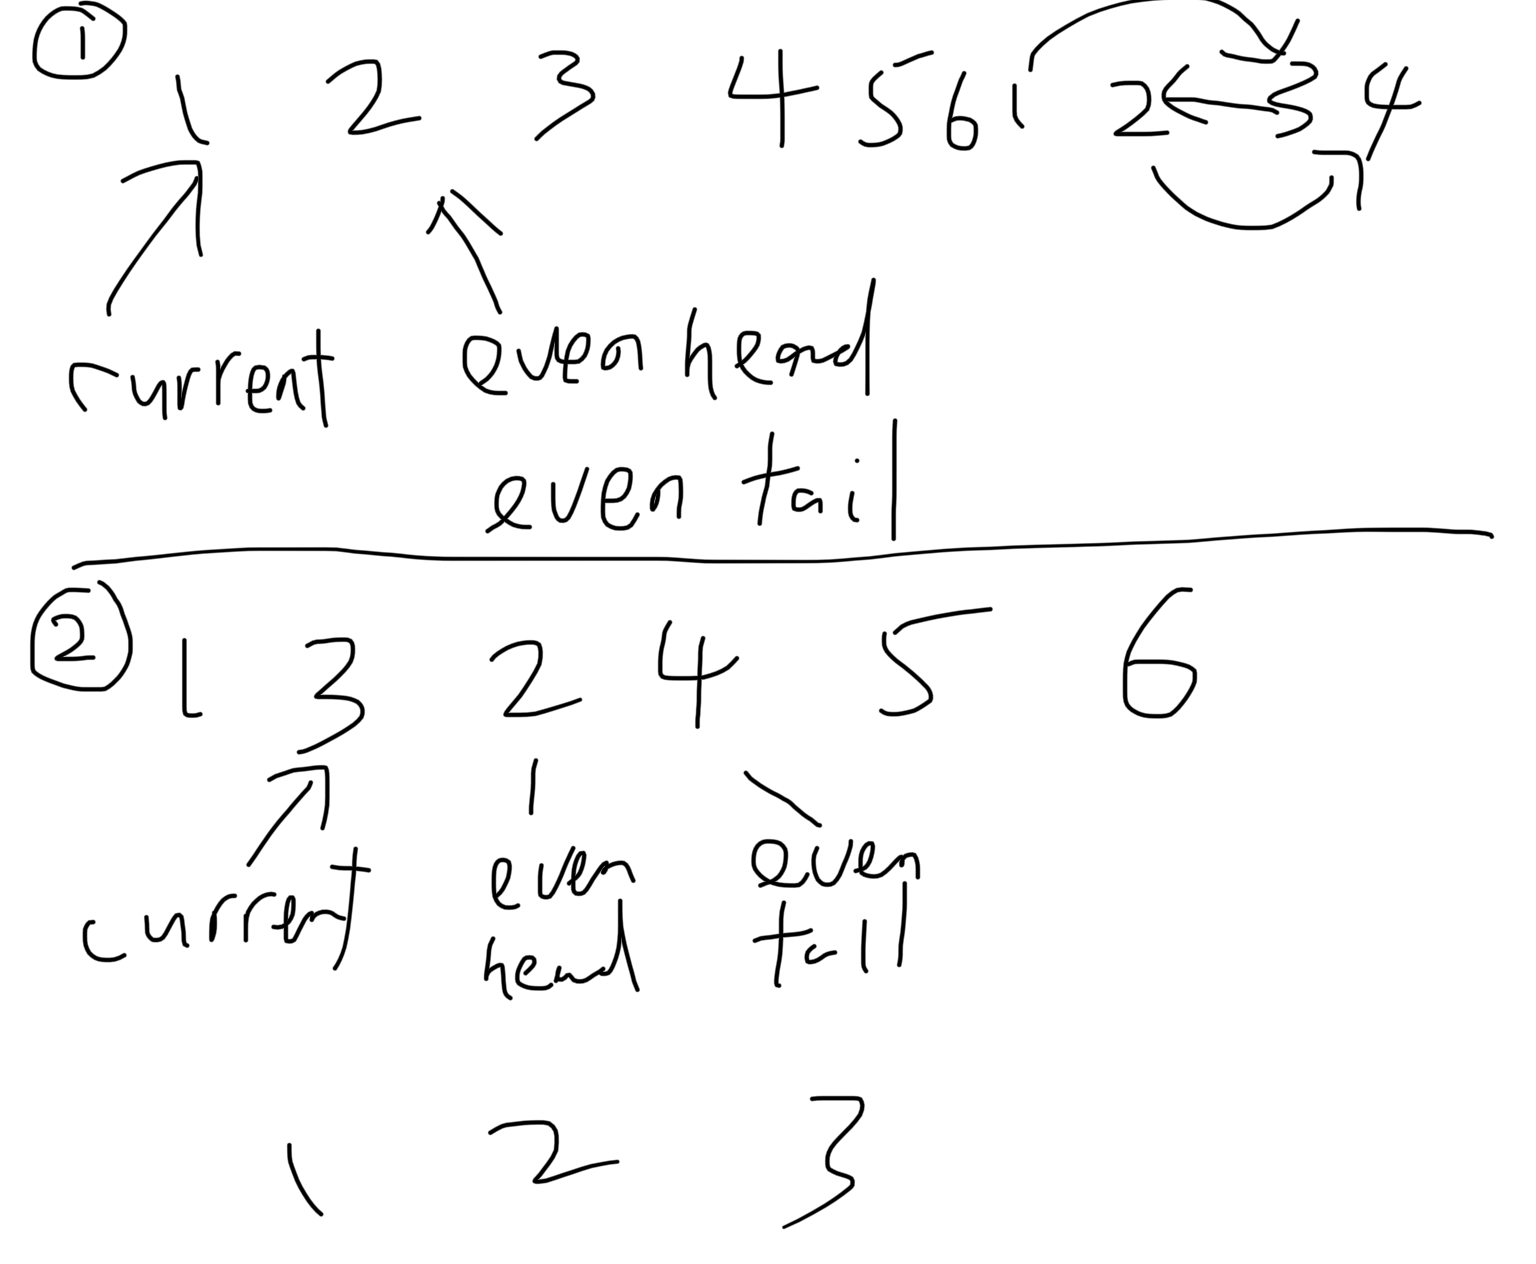 1
1 2 3 4 5 6 1 2 3 4
current even head
even tail
2
1 3 2 4 5 6
current even head even tail
1 2 3